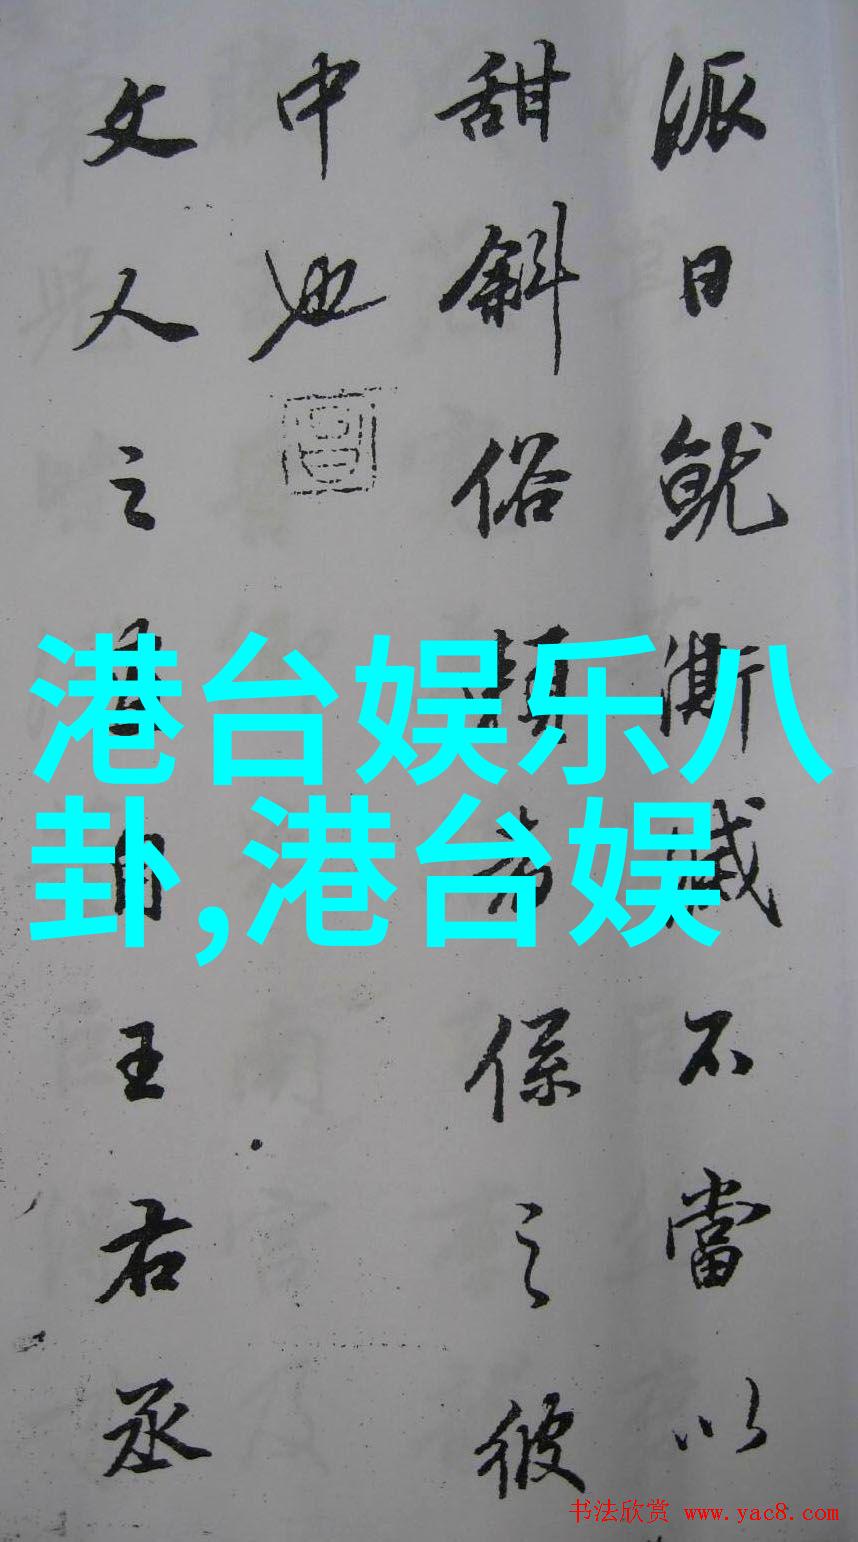 派日就澌滅不當以
甜斜俗賴者係之彼
中也
文人之畫自王右丞
港台娱乐八
卦,港台娱
书法欣赏 www.yac8.com